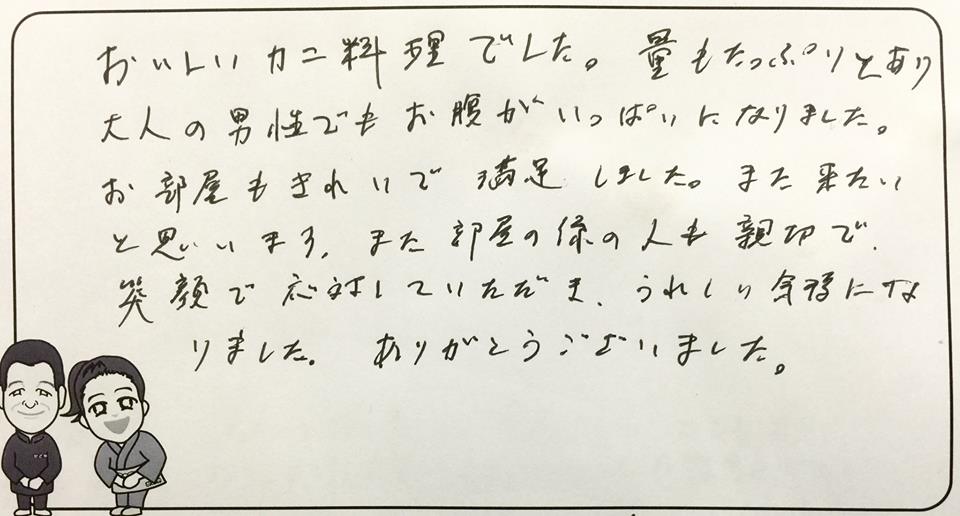 おいしいカニ料理でした。量もたっぷりとあり
大人の男性でもお腹がいっぱいになりました。
お部屋もきれいで満足しました。また来たい
と思いいます。また部屋の係の人も親切で、
笑顔で応対していただき、うれしい気持にな
りました。ありがとうございました。